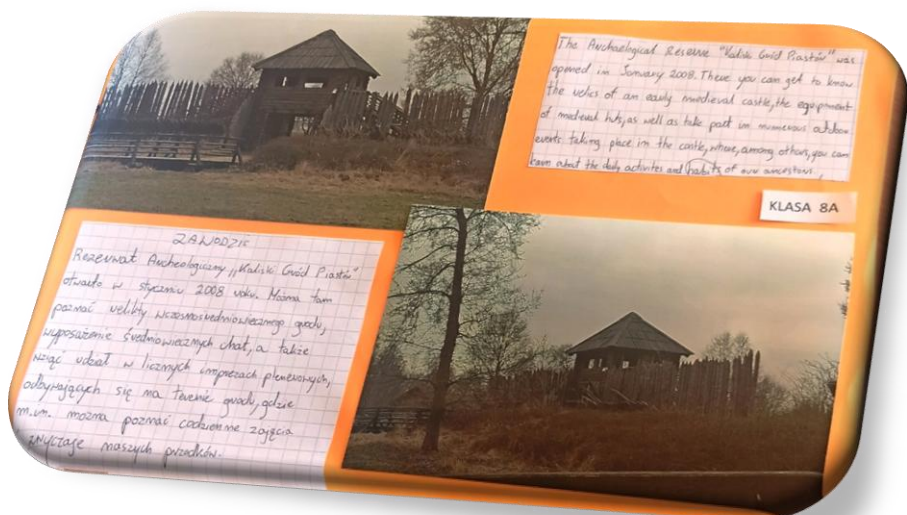 The Archaeological Reserve "Kaliski Gród Piastów" was
opened in January 2008. There you can get to know
the relics of an early medieval castle, the equipment
of medieval huts, as well as take part in numerous outdoor
events taking place in the castle, where, among others, you can
learn about the daily activities and habits of our ancestors.
KLASA 8A
ZAWODZIE
Rezerwat Archeologiczny „Kaliski Gród Piastów"
otwarto w styczniu 2008 roku. Można tam
poznać relikty wczesnośredniowiecznego grodu,
wyposażenie średniowiecznych chat, a także
wziąć udział w licznych imprezach plenerowych,
odbywających się na terenie grodu, gdzie
m.in. można poznać codzienne zajęcia
zwyczaje naszych przodków.